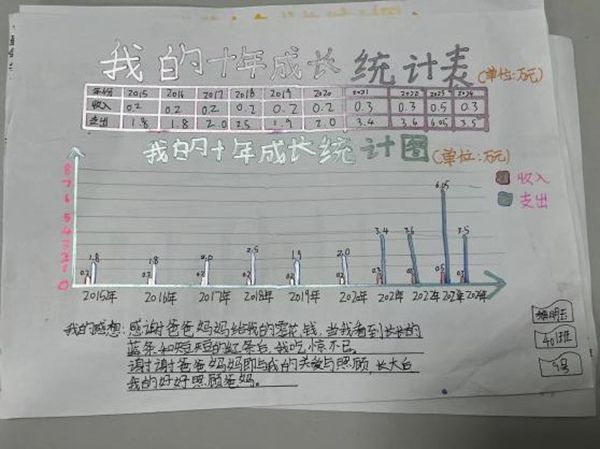 我的十年成长统计表(单位:万元)
年份 2015 2016 2017 2018 2019 2020 2021 2022 2023 2024
收入 0.2 0.2 0.2 0.2 0.2 0.2 0.3 0.3 0.5 0.3
支出 1.8 1.8 2.0 2.5 1.9 2.0 3.4 3.6 6.05 3.5
我的十年成长统计图(单位:万元)
收入
支出
8
7
6
5
4
3
2
1
0
0.2 1.8 0.2 1.8 0.2 2.0 0.2 2.5 0.2 1.9 0.2 2.0 0.3 3.4 0.3 3.6 0.5 6.05 0.3 3.5
2015年 2016年 2017年 2018年 2019年
我的感想:感谢爸爸妈妈给我的零花钱,当我看到长长的
蓝条和短短的红条台,我吃惊不已,
谢谢爸爸妈妈即与我的关爱与照顾,长大台
我的好好照顾爸妈。
401班
9号